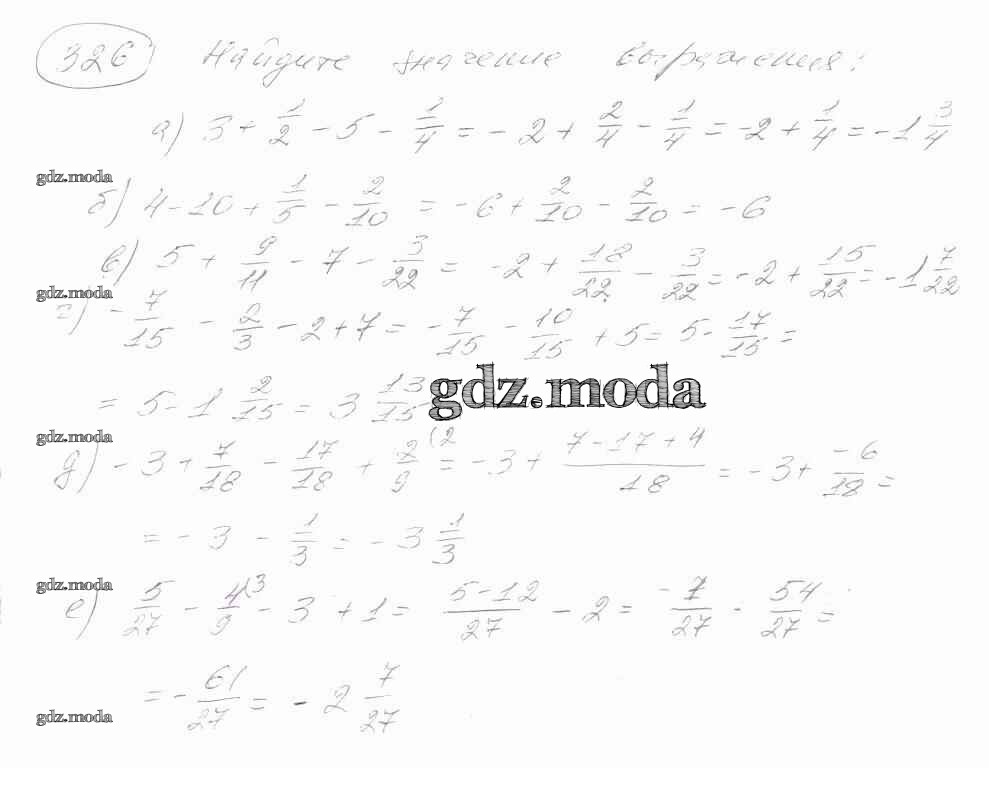 326 Найдите значение выражения:
а) 3 + 1/2 - 5 - 1/4 = - 2 + 2/4 - 1/4 = -2 + 1/4 = -1 3/4
gdz.moda
б) 4 - 10 + 1/5 - 2/10 = - 6 + 2/10 - 2/10 = - 6
в) 5 + 9/11 - 7 - 3/22 = -2 + 18/22 - 3/22 = -2 + 15/22 = -1 7/22
gdz.moda
г) - 7/15 - 2/3 - 2 + 7 = - 7/15 - 10/15 + 5 = 5 - 17/15 =
= 5 - 1 2/15 = 3 13/15
gdz.moda
gdz.moda
д) - 3 + 7/18 - 17/18 + 2/9 (2 = - 3 + 7 - 17 + 4/18 = - 3 + -6/18 =
= - 3 - 1/3 = - 3 1/3
gdz.moda
е) 5/27 - 4/9 (3 - 3 + 1 = 5 - 12/27 - 2 = -7/27 - 54/27 =
= - 61/27 = - 2 7/27
gdz.moda